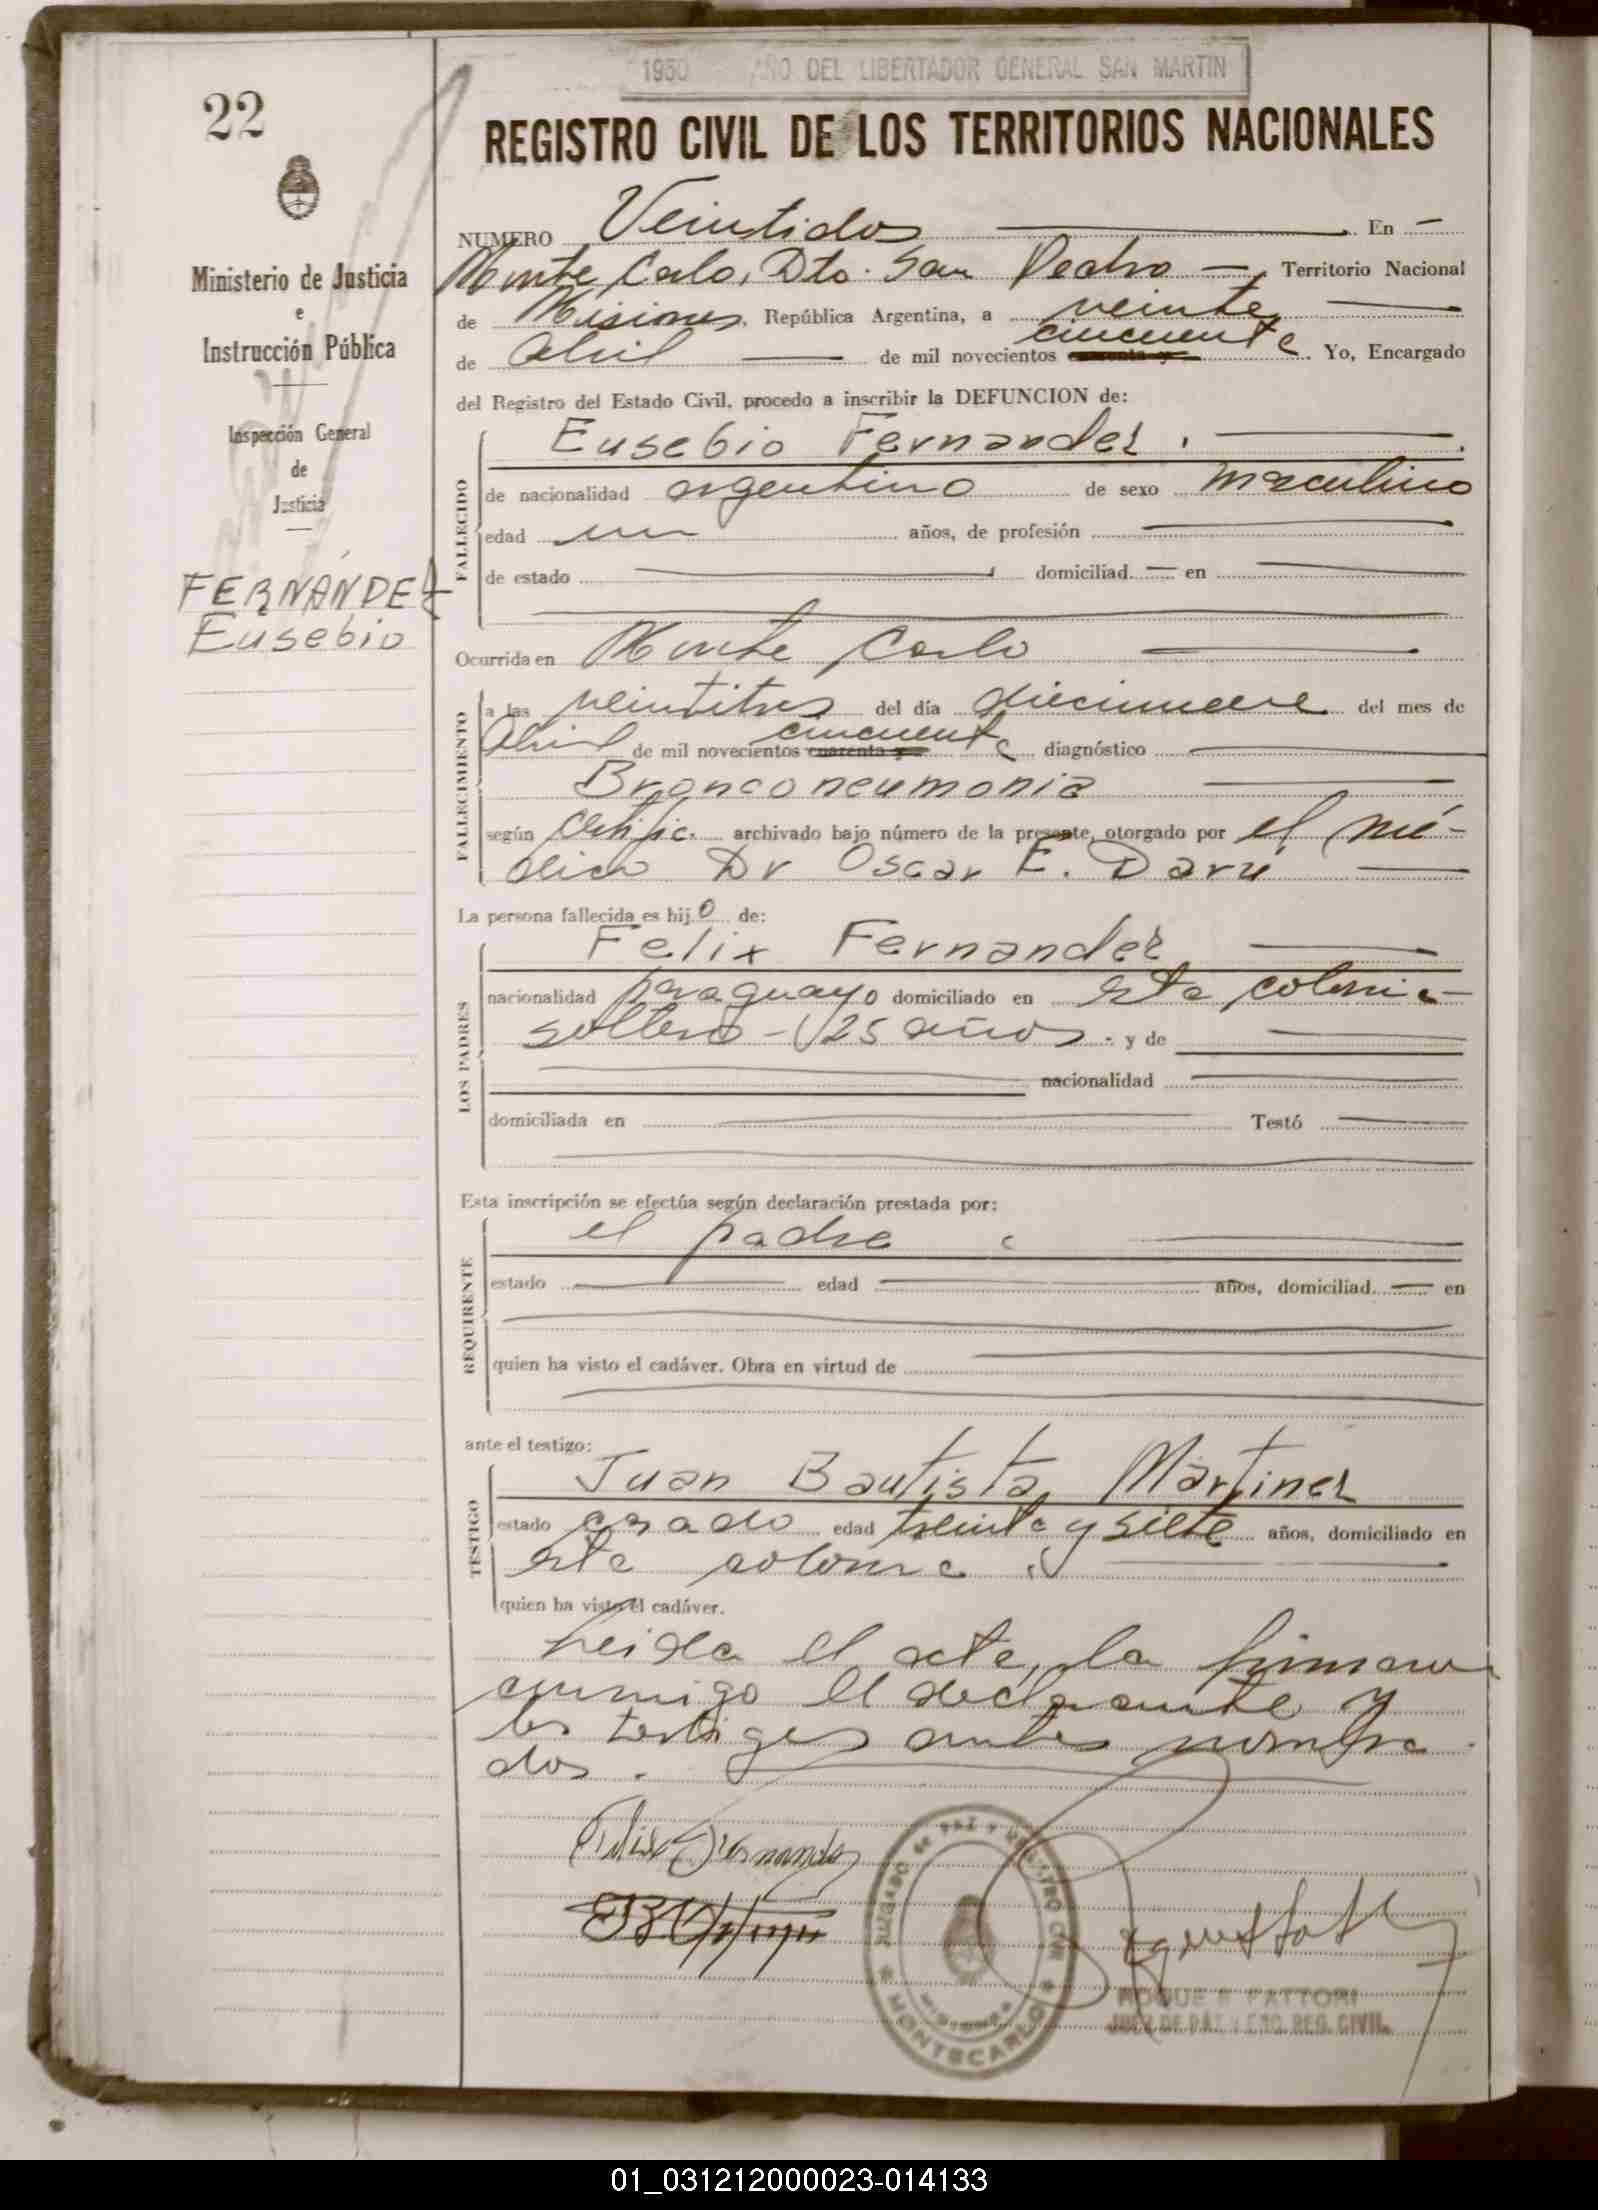 1950 AÑO DEL LIBERTADOR GENERAL SAN MARTIN
22
REGISTRO CIVIL DE LOS TERRITORIOS NACIONALES
Ministerio de Justicia
e
Instrucción Pública
Inspección General
de
Justicia
FERNÁNDEZ
Eusebio
NUMERO Veintidos En
Monte Carlo, Dto. San Pedro Territorio Nacional
de Misiones, República Argentina, a veinte
de Abril de mil novecientos cuarenta y cincuenta. Yo, Encargado
del Registro del Estado Civil, procedo a inscribir la DEFUNCION de:
FALLECIDO
Eusebio Fernandez.
de nacionalidad argentino de sexo masculino
edad un años, de profesión
de estado domiciliad en
Ocurrida en Monte Carlo
FALLECIMIENTO
a las veintitres del día diecinueve del mes de
Abril de mil novecientos cuarenta y cincuenta diagnóstico
Bronconeumonia
según certific. archivado bajo número de la presente, otorgado por el mé-
dico Dr Oscar E. Darú
La persona fallecida es hijo de:
LOS PADRES
Felix Fernandez
nacionalidad paraguayo domiciliado en esta colonia
soltero - 25 años. y de
nacionalidad
domiciliada en Testó
Esta inscripción se efectúa según declaración prestada por:
REQUIRENTE
el padre
estado edad años, domiciliad en
quien ha visto el cadáver. Obra en virtud de
ante el testigo:
TESTIGO
Juan Bautista Martinez
estado casado edad treinta y siete años, domiciliado en
esta colonia.
quien ha visto el cadáver.
Leida el acta, la firman
conmigo el declarante y
los testigos antes nombra
dos.
Felix Fernandez
JUZGADO DE PAZ Y REGISTRO CIVIL
MISIONES
MONTECARLO
ROQUE E FATTORI
JUEZ DE PAZ Y ENC. REG. CIVIL
01_031212000023-014133